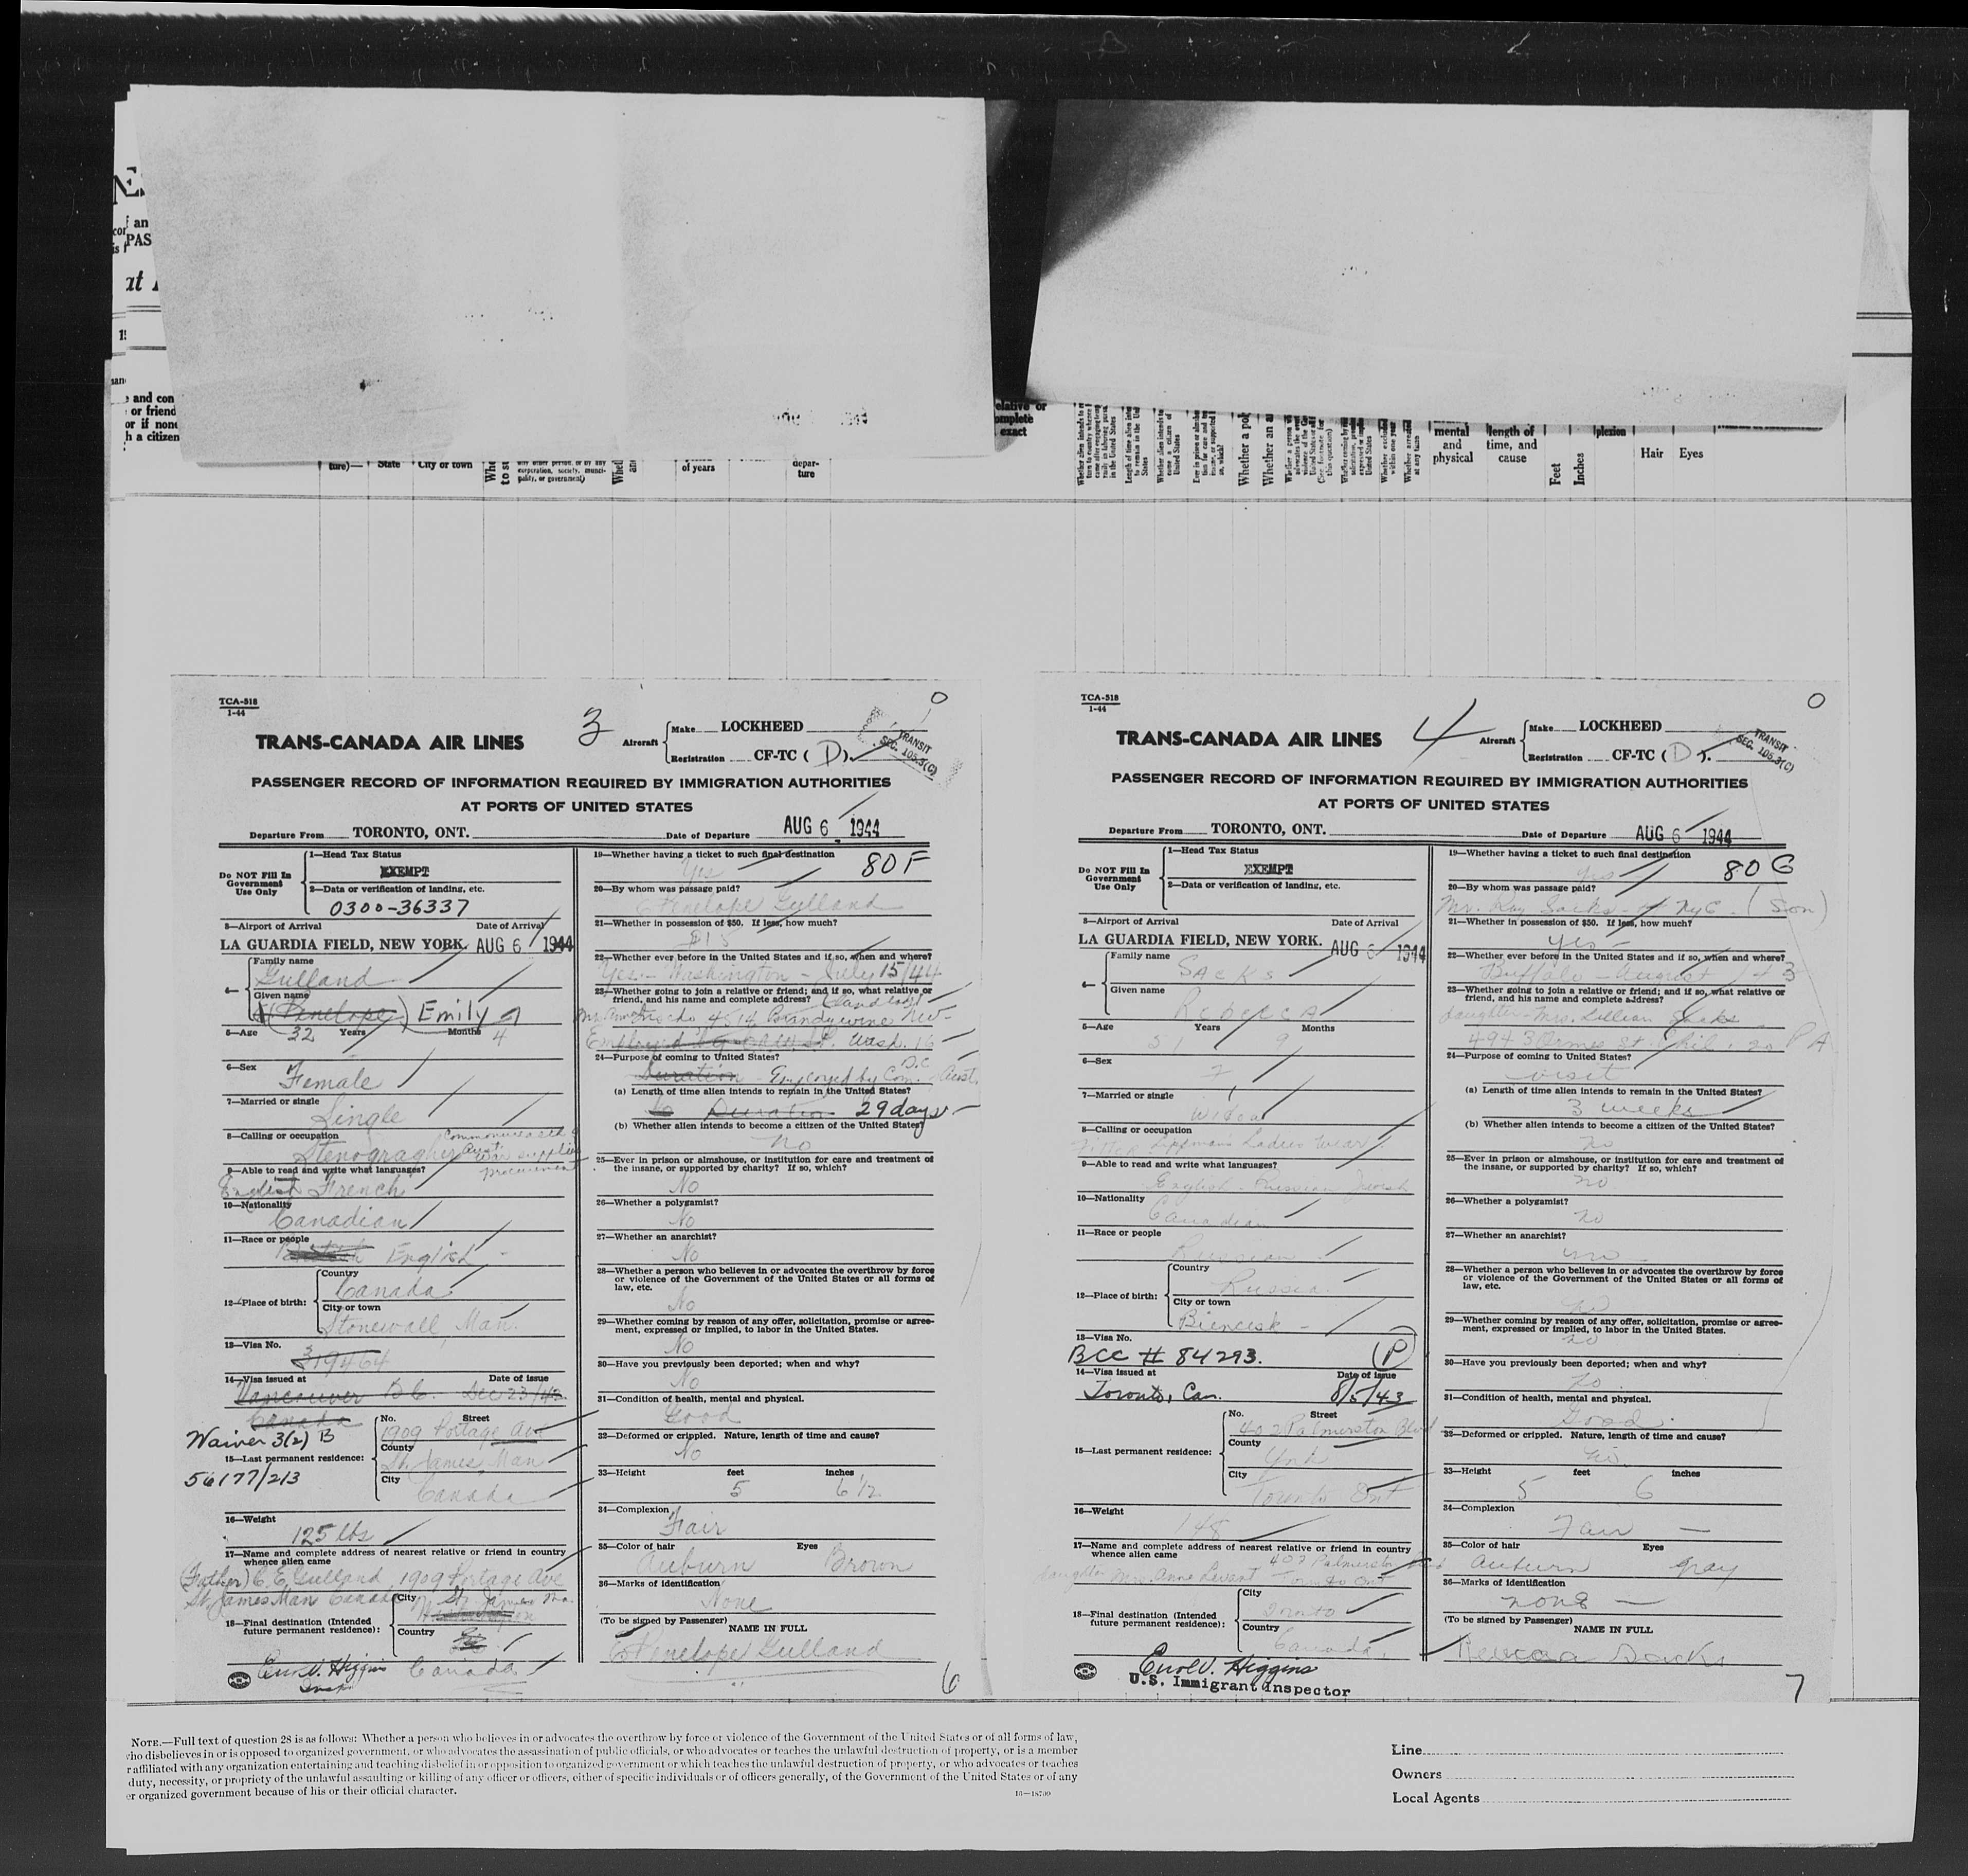 and con
or friend
or if none
h a citizen
ture)— State City or town
of years
depar-
ture
elative or
omplete
exact
mental
and
physical
length of
time, and
cause
Feet
Inches
plexion
Hair Eyes
TCA-518
1-44
TRANS-CANADA AIR LINES
3
Aircraft
Make LOCKHEED
Registration CF-TC ( D ).
TRANSIT
SEC. 105.3(C)
PASSENGER RECORD OF INFORMATION REQUIRED BY IMMIGRATION AUTHORITIES
AT PORTS OF UNITED STATES
Departure From TORONTO, ONT. Date of Departure AUG 6 1944
Do NOT Fill In
Government
Use Only
1—Head Tax Status
EXEMPT
2—Data or verification of landing, etc.
0300-36337
3—Airport of Arrival Date of Arrival
LA GUARDIA FIELD, NEW YORK. AUG 6 1944
4—
Family name
Gulland
Given name
(Penelope) Emily
5—Age 32 Years Months 4
6—Sex
Female
7—Married or single
Single
8—Calling or occupation
Stenographer
9—Able to read and write what languages?
English French
10—Nationality
Canadian
11—Race or people
British English
12—Place of birth:
Country
Canada
City or town
Stonewall, Man.
13—Visa No.
319464
14—Visa issued at Date of issue
Vancouver B.C. Dec 23/43
Canada
Waiver 3(2) B
15—Last permanent residence:
56177/213
No. Street
1909 Portage Ave
County
St. James, Man
City
Canada
16—Weight
125 lbs
17—Name and complete address of nearest relative or friend in country
whence alien came
(Father) C. E. Gulland, 1909 Portage Ave
St. James Man Canada
18—Final destination (Intended
future permanent residence):
City St. James Ma.
Country
Canada
Errol V. Higgins
Insp
19—Whether having a ticket to such final destination
Yes
80 F
20—By whom was passage paid?
Penelope Gulland
21—Whether in possession of $50. If less, how much?
$15
22—Whether ever before in the United States and if so, when and where?
Yes — Washington — July 15/44
23—Whether going to join a relative or friend; and if so, what relative or
friend, and his name and complete address?
4514 Brandywine NW-
Wash. 16
D.C
24—Purpose of coming to United States?
Duration - Employed by Com. Aust.
(a) Length of time alien intends to remain in the United States?
Duration 29 days
(b) Whether alien intends to become a citizen of the United States?
No
25—Ever in prison or almshouse, or institution for care and treatment of
the insane, or supported by charity? If so, which?
No
26—Whether a polygamist?
No
27—Whether an anarchist?
No
28—Whether a person who believes in or advocates the overthrow by force
or violence of the Government of the United States or all forms of
law, etc.
No
29—Whether coming by reason of any offer, solicitation, promise or agree-
ment, expressed or implied, to labor in the United States.
No
30—Have you previously been deported; when and why?
No
31—Condition of health, mental and physical.
Good
32—Deformed or crippled. Nature, length of time and cause?
No
33—Height feet inches
5 6 1/2
34—Complexion
Fair
35—Color of hair Eyes
Auburn Brown
36—Marks of identification
None
(To be signed by Passenger) NAME IN FULL
E Penelope Gulland
6
TCA-518
1-44
TRANS-CANADA AIR LINES
4
Aircraft
Make LOCKHEED
Registration CF-TC ( D ).
TRANSIT
SEC. 105.3(C)
PASSENGER RECORD OF INFORMATION REQUIRED BY IMMIGRATION AUTHORITIES
AT PORTS OF UNITED STATES
Departure From TORONTO, ONT. Date of Departure AUG 6 1944
Do NOT Fill In
Government
Use Only
1—Head Tax Status
EXEMPT
2—Data or verification of landing, etc.
3—Airport of Arrival Date of Arrival
LA GUARDIA FIELD, NEW YORK. AUG 6 1944
4—
Family name
Sacks
Given name
Rebecca
5—Age Years Months
51 9
6—Sex
F
7—Married or single
Widow
8—Calling or occupation
Ladies Wear
9—Able to read and write what languages?
English - Russian Jewish
10—Nationality
Canadian
11—Race or people
Russian
12—Place of birth:
Country
Russia
City or town
Biencesk
13—Visa No.
BCC # 84293. (P)
14—Visa issued at Date of issue
Toronto, Can. 8/5/43
15—Last permanent residence:
No. Street
402 Palmerston Blvd
County
York
City
Toronto Ont
16—Weight
148
17—Name and complete address of nearest relative or friend in country
whence alien came
daughter Mrs. Anne Levant Toronto Ont
18—Final destination (Intended
future permanent residence):
City
Toronto
Country
Canada
Errol V. Higgins
U.S. Immigrant Inspector
19—Whether having a ticket to such final destination
Yes
80 G
20—By whom was passage paid?
Mr. Roy Sacks - of NYC - (Son)
21—Whether in possession of $50. If less, how much?
Yes -
22—Whether ever before in the United States and if so, when and where?
Buffalo - August /43
23—Whether going to join a relative or friend; and if so, what relative or
friend, and his name and complete address?
daughter - Mrs. Lillian
4943 Ormes St - Phil. 20 PA
24—Purpose of coming to United States?
visit
(a) Length of time alien intends to remain in the United States?
3 weeks
(b) Whether alien intends to become a citizen of the United States?
no
25—Ever in prison or almshouse, or institution for care and treatment of
the insane, or supported by charity? If so, which?
no
26—Whether a polygamist?
no
27—Whether an anarchist?
no
28—Whether a person who believes in or advocates the overthrow by force
or violence of the Government of the United States or all forms of
law, etc.
no
29—Whether coming by reason of any offer, solicitation, promise or agree-
ment, expressed or implied, to labor in the United States.
no
30—Have you previously been deported; when and why?
no
31—Condition of health, mental and physical.
Good.
32—Deformed or crippled. Nature, length of time and cause?
no
33—Height feet inches
5 6
34—Complexion
Fair —
35—Color of hair Eyes
auburn gray
36—Marks of identification
none —
(To be signed by Passenger) NAME IN FULL
Rebecca Sacks
7
NOTE.—Full text of question 28 is as follows: Whether a person who believes in or advocates the overthrow by force or violence of the Government of the United States or of all forms of law,
who disbelieves in or is opposed to organized government, or who advocates the assassination of public officials, or who advocates or teaches the unlawful destruction of property, or is a member
r affiliated with any organization entertaining and teaching disbelief in or opposition to organized government or which teaches the unlawful destruction of property, or who advocates or teaches
duty, necessity, or propriety of the unlawful assaulting or killing of any officer or officers, either of specific individuals or of officers generally, of the Government of the United States or of any
er organized government because of his or their official character.
16—18709
Line
Owners
Local Agents